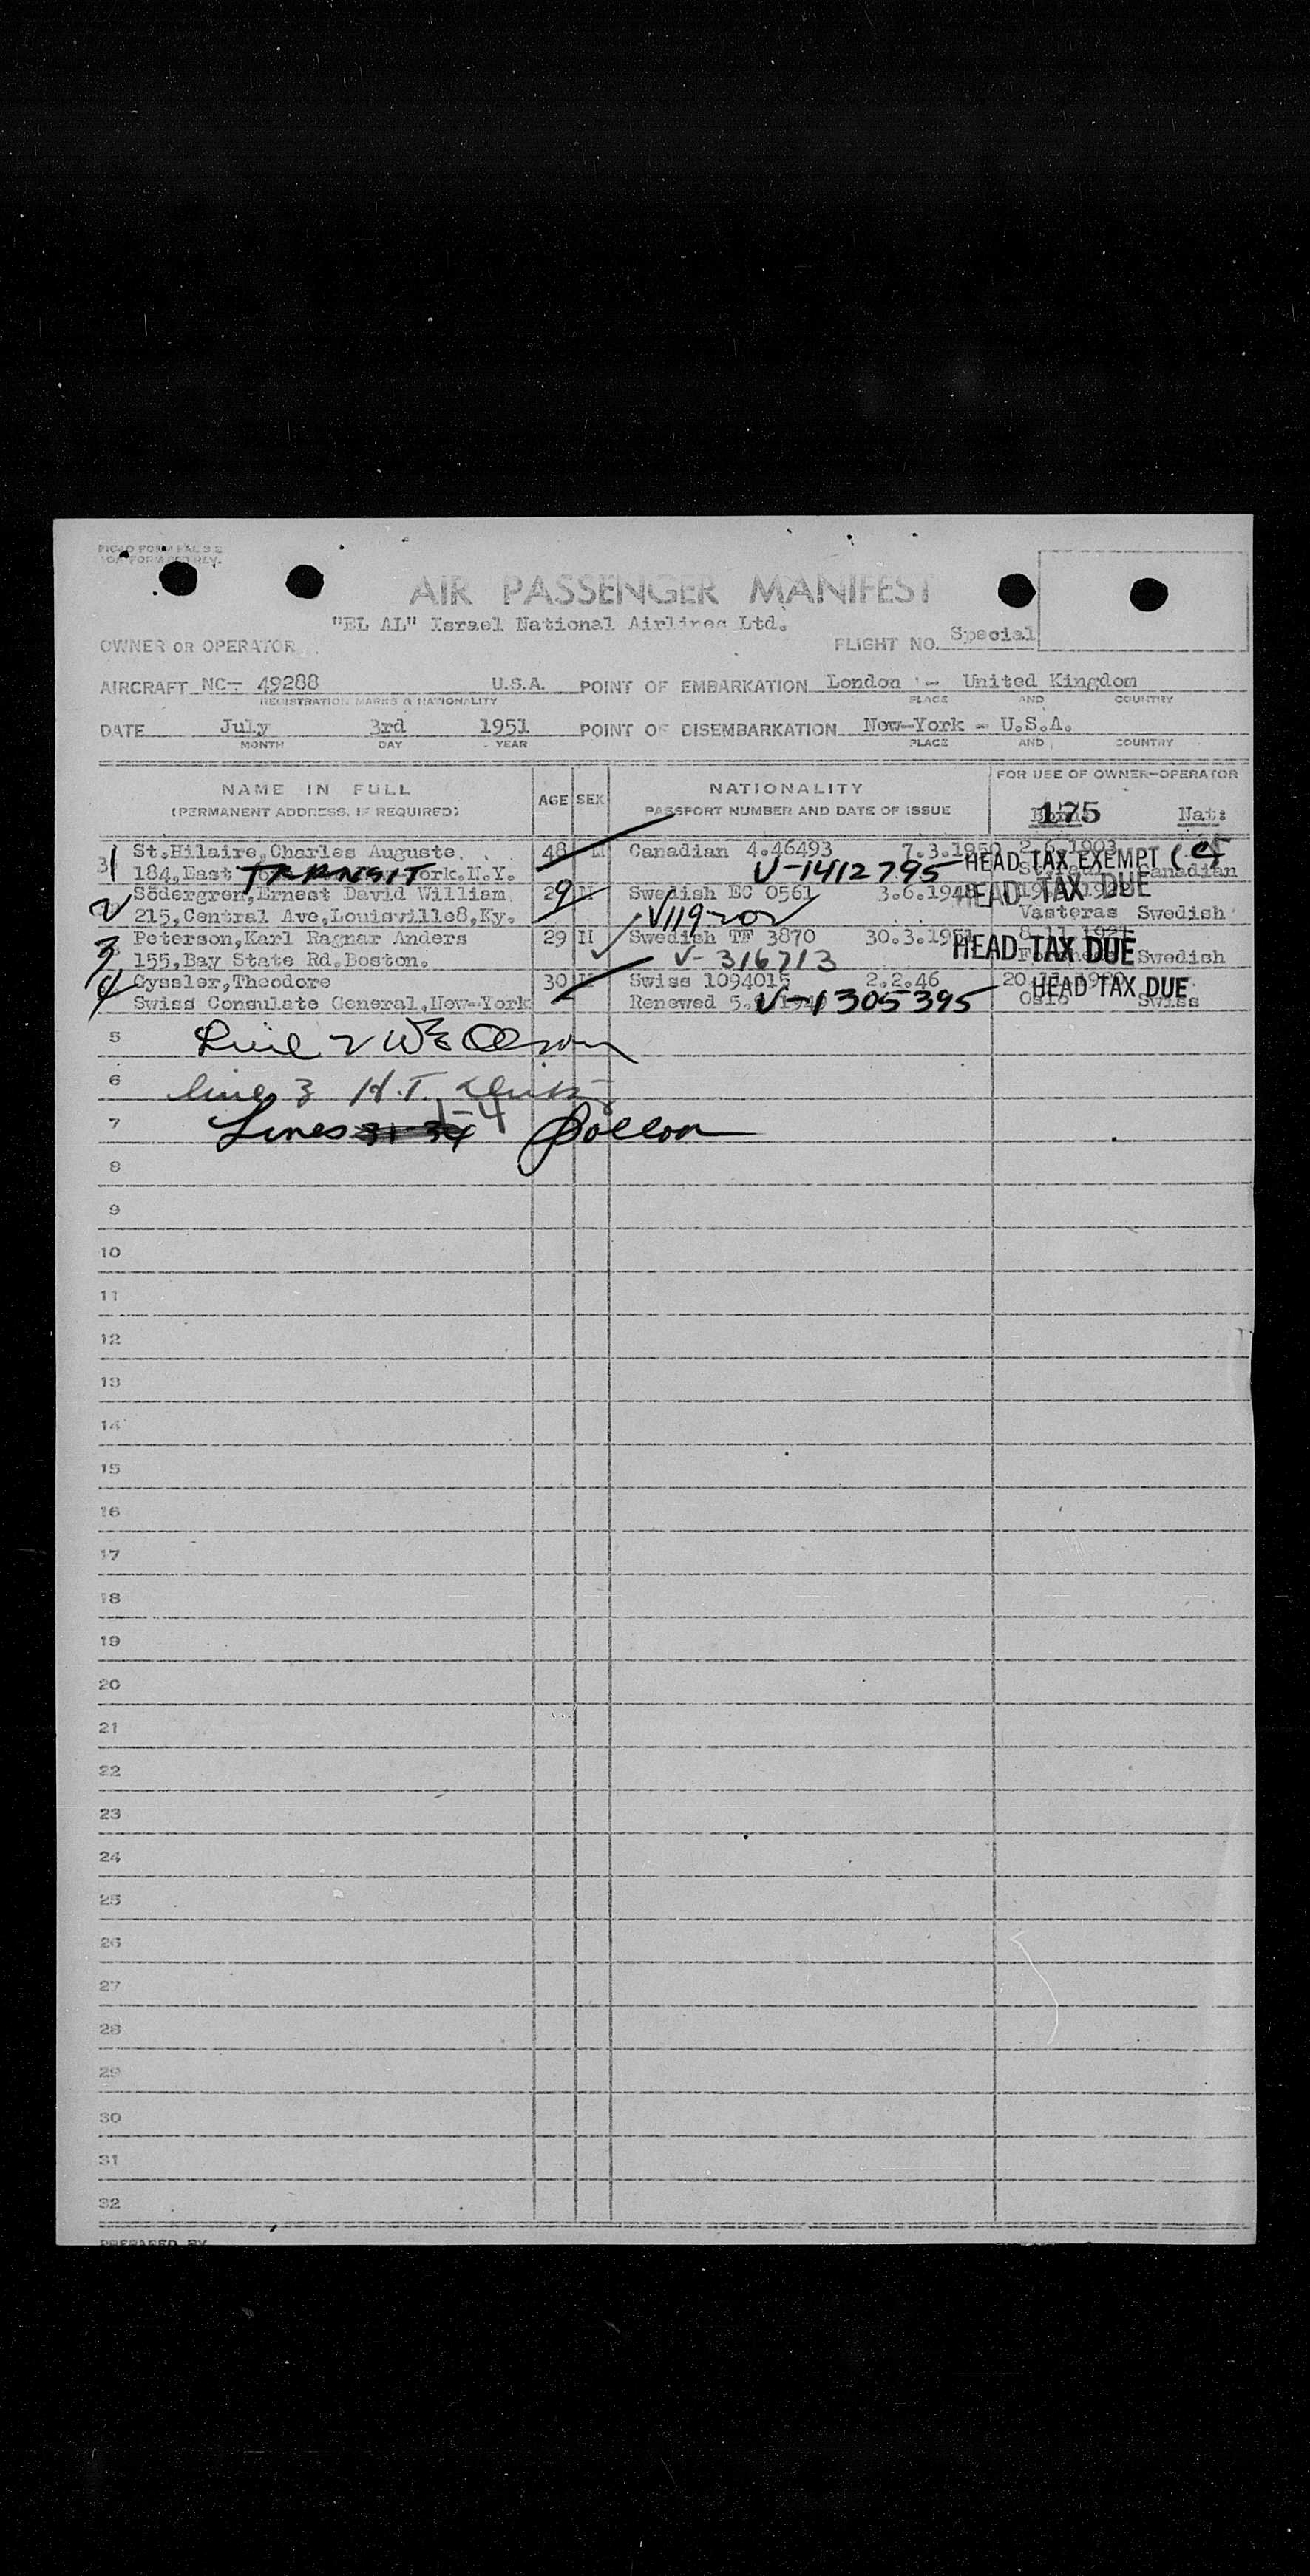 AIR PASSENGER MANIFEST
"EL AL" Israel National Airlines Ltd.
OWNER OR OPERATOR
FLIGHT NO. Special
AIRCRAFT NC- 49288 U.S.A. POINT OF EMBARKATION London - United Kingdom
REGISTRATION MARKS & NATIONALITY PLACE AND COUNTRY
DATE July 3rd 1951 POINT OF DISEMBARKATION New-York - U.S.A.
MONTH DAY YEAR PLACE AND COUNTRY
NAME IN FULL AGE SEX NATIONALITY FOR USE OF OWNER-OPERATOR
(PERMANENT ADDRESS, IF REQUIRED) PASSPORT NUMBER AND DATE OF ISSUE 175 Nat:
1 St.Hilaire,Charles Auguste 48 M Canadian 4.46493 7.3.1950 2.6.1903
184,East TRANSIT York.N.Y. V-1412795 HEAD TAX EXEMPT Canadian
2 Södergren,Ernest David William 29 M Swedish EC 0561 3.6.1948 HEAD TAX DUE
215,Central Ave,Louisville8,Ky. V119202 Vasteras Swedish
3 Peterson,Karl Ragnar Anders 29 M Swedish TF 3870 30.3.1951 8.11.1921
155,Bay State Rd.Boston. V-316713 HEAD TAX DUE Swedish
4 Gyssler,Theodore 30 M Swiss 1094015 2.2.46 20.11.1920
Swiss Consulate General,New-York Renewed 5. V-1305395 HEAD TAX DUE Oslo Swiss
5 Line 2 WE Olson
6 line 3 H.T.
7 Lines 1-4
8
9
10
11
12
13
14
15
16
17
18
19
20
21
22
23
24
25
26
27
28
29
30
31
32
PREPARED BY